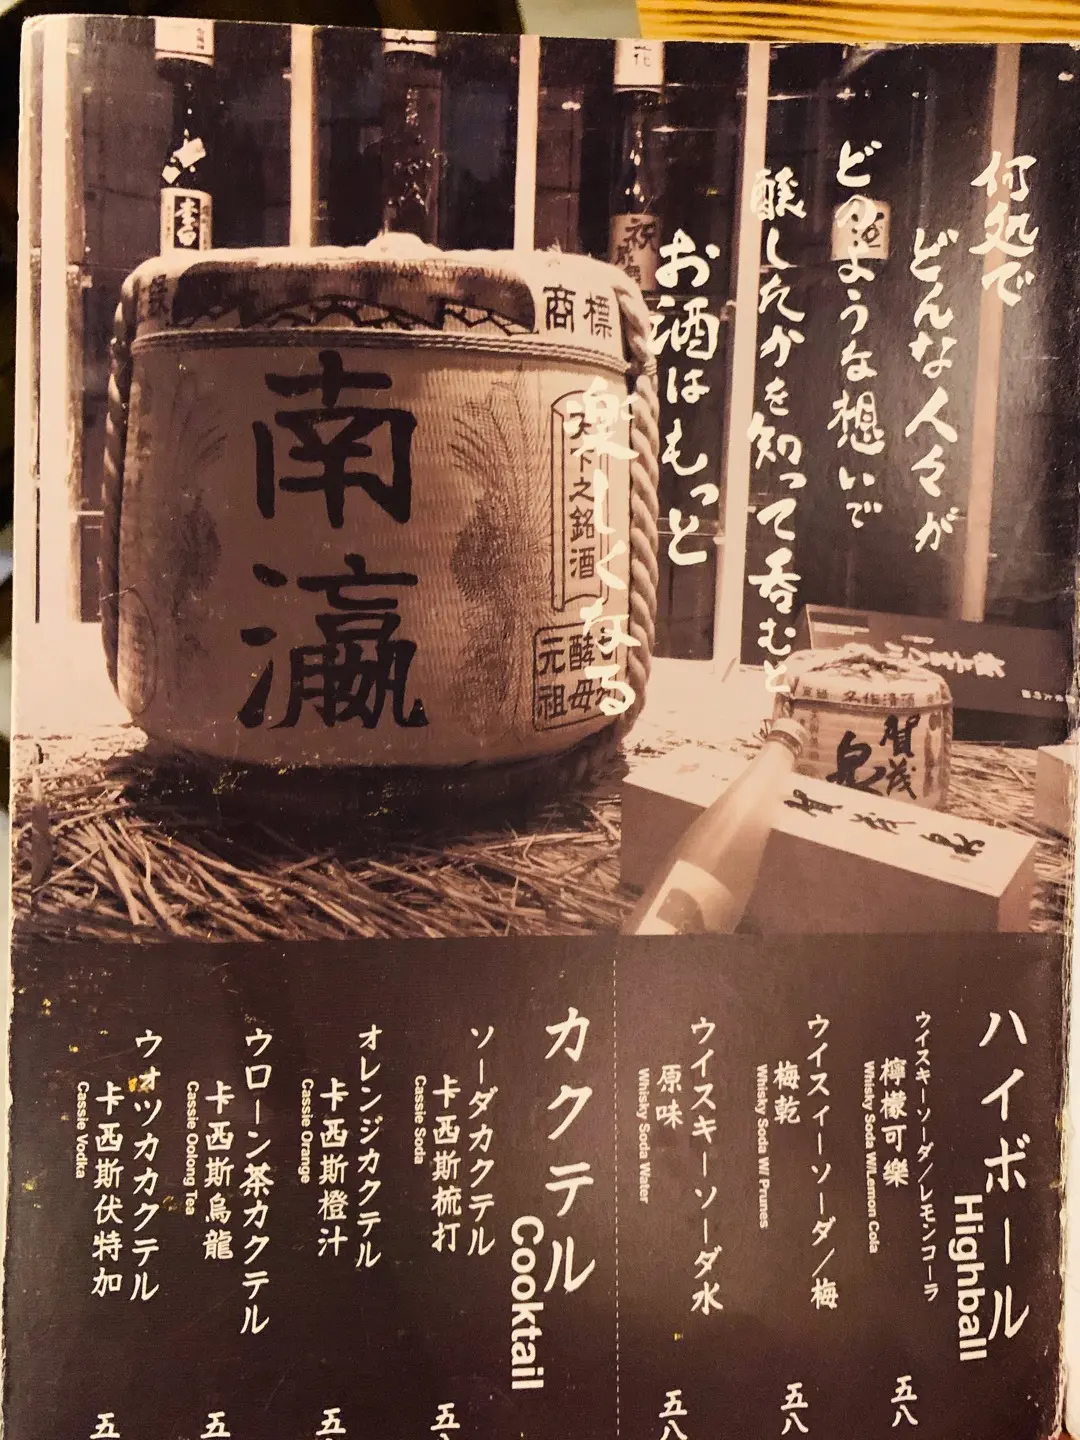 何処で
どんな人々が
どのような想いで
醸したかを知って呑むと
お酒はもっと
楽しくなる
花
李白
祝
商標
南瀛
天下之銘酒
元祖
酵母
名作清酒
賀茂
泉
ハイボール
Highball
ウイスキーソーダ/レモンコーラ
檸檬可樂
Whisky Soda W/Lemon Cola
五八
ウイスィーソーダ/梅
梅乾
Whisky Soda W/Prunes
五八
ウイスキーソーダ水
原味
Whisky Soda Water
五八
カクテル
Cooktail
ソーダカクテル
卡西斯梳打
Cassie Soda
五
オレンジカクテル
卡西斯橙汁
Cassie Orange
五
ウローン茶カクテル
卡西斯烏龍
Cassie Oolong Tea
五
ウォツカカクテル
卡西斯伏特加
Cassie Vodka
五